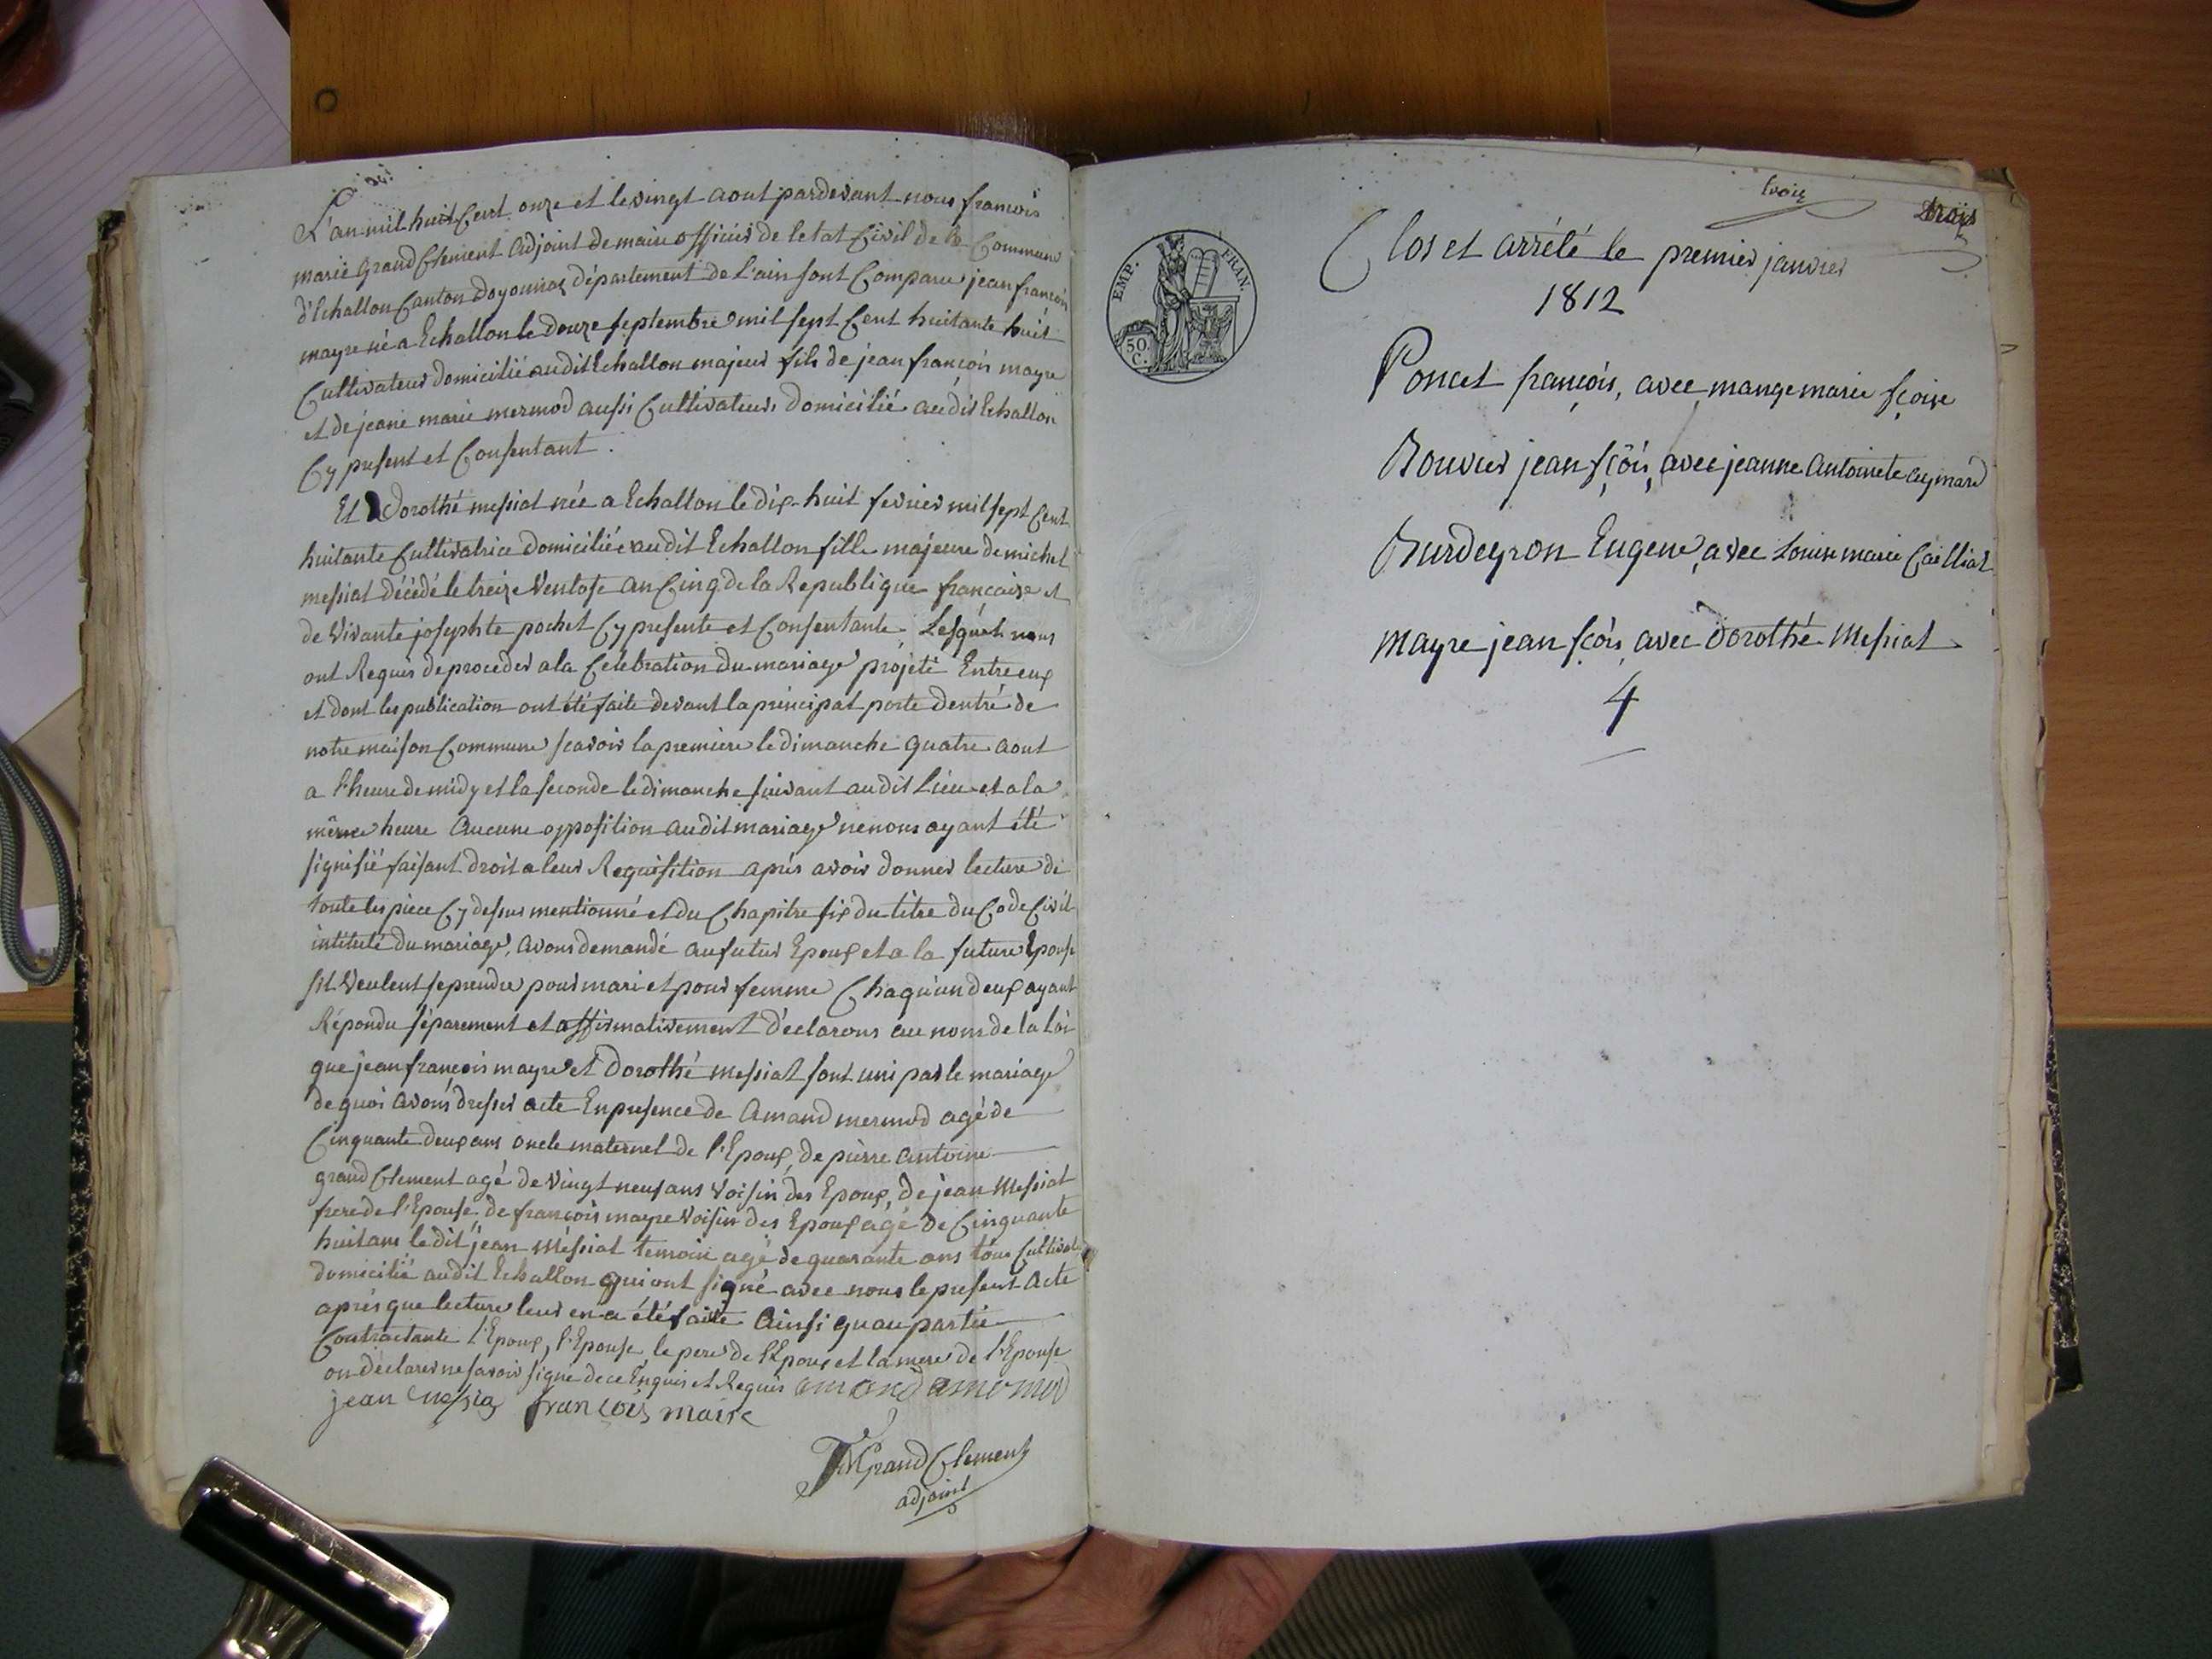 L'an mil huit Cent onze et le vingt aout pardevant nous francois
marie grand Clement adjoint de maire officier de letat Civil de la Commune
d'Echallon Canton doyonnax département de L'ain sont Comparu jean francois
mayre né a Echallon le douze septembre mil sept Cent huitante huit
Cultivateur domicilié audit Echallon majeur fils de jean francois mayre
et de jeane marie mermod aussi Cultivateurs domicilié audit Echallon
Cy present et Consentant.
Et Dorothé messiat née a Echallon le dix-huit fevrier mil sept Cent
huitante Cultivatrice domiciliée audit Echallon fille majeure de michel
messiat décédé le treize Ventose an Cinq de la Republique française et
de Vivante josephte pochet Cy presente et Consentante, Lesquels nous
ont Requis de proceder a la Célébration du mariage projeté Entre eux
et dont les publication ont été faite devant la principal porte dentré de
notre maison Commune scavoir la premiere le dimanche quatre aout
a l'heure de midy et la seconde le dimanche suivant audit Lieu et a la
même heure Aucune opposition audit mariage ne nous ayant été
signifié faisant droit a leur Requisition après avoir donner lecture de
toute les piece Cy dessus mentionné et du Chapitre six du titre du Code Civil
intitulé du mariage, avons demandé au futur Epoux et a la future Epouse
sil Veulent se prendre pour mari et pour femme Chaqu'un deux ayant
Répondu séparement et affirmativement déclarons au nom de la Loi
que jean francois mayre et Dorothé messiat sont uni par le mariage
de quoi avons dresser acte En presence de Amand mermod agé de
Cinquante deux ans oncle maternel de l'Epoux, de pierre antoine
grand Clement agé de Vingt neuf ans Voisin des Epoux, de jean Messiat
frere de l'Epouse de francois mayre Voisin des Epoux agé de Cinquante
huit ans le dit jean Messiat temoin agé de quarante ans tous Cultivat
domicilié audit Echallon qui ont signé avec nous le present acte
après que lecture leur en a été faite Ainsi quau partie
Contractante l'Epoux, l'Epouse le pere de l'Epoux et la mere de l'Epouse
on déclarer ne savoir signé de ce Enquis et Requis amand
jean messia francois maire
Grand Clement
adjoint
trois
trois
EMP. FRAN.
50.
C.
Clos et arrêté le premier janvier
1812
Poncet françois, avec mange marie fçoise
Bouvier jean fçois, avec jeanne Antoinete aymard
Burdeyron Eugene, avec Louise marie Cailliat
mayre jean fçois, avec Dorothé Messiat
4